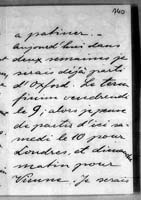 140
à patiner. -
Aujourd'hui dans
deux semaines je
serais déjà partie
d'Oxford. Le term
finira vendredi
le 9; alors je pense
de partir d'ici sa-
medi le 10 pour
Londres, et dimanche
matin pour
Vienne. Je serais